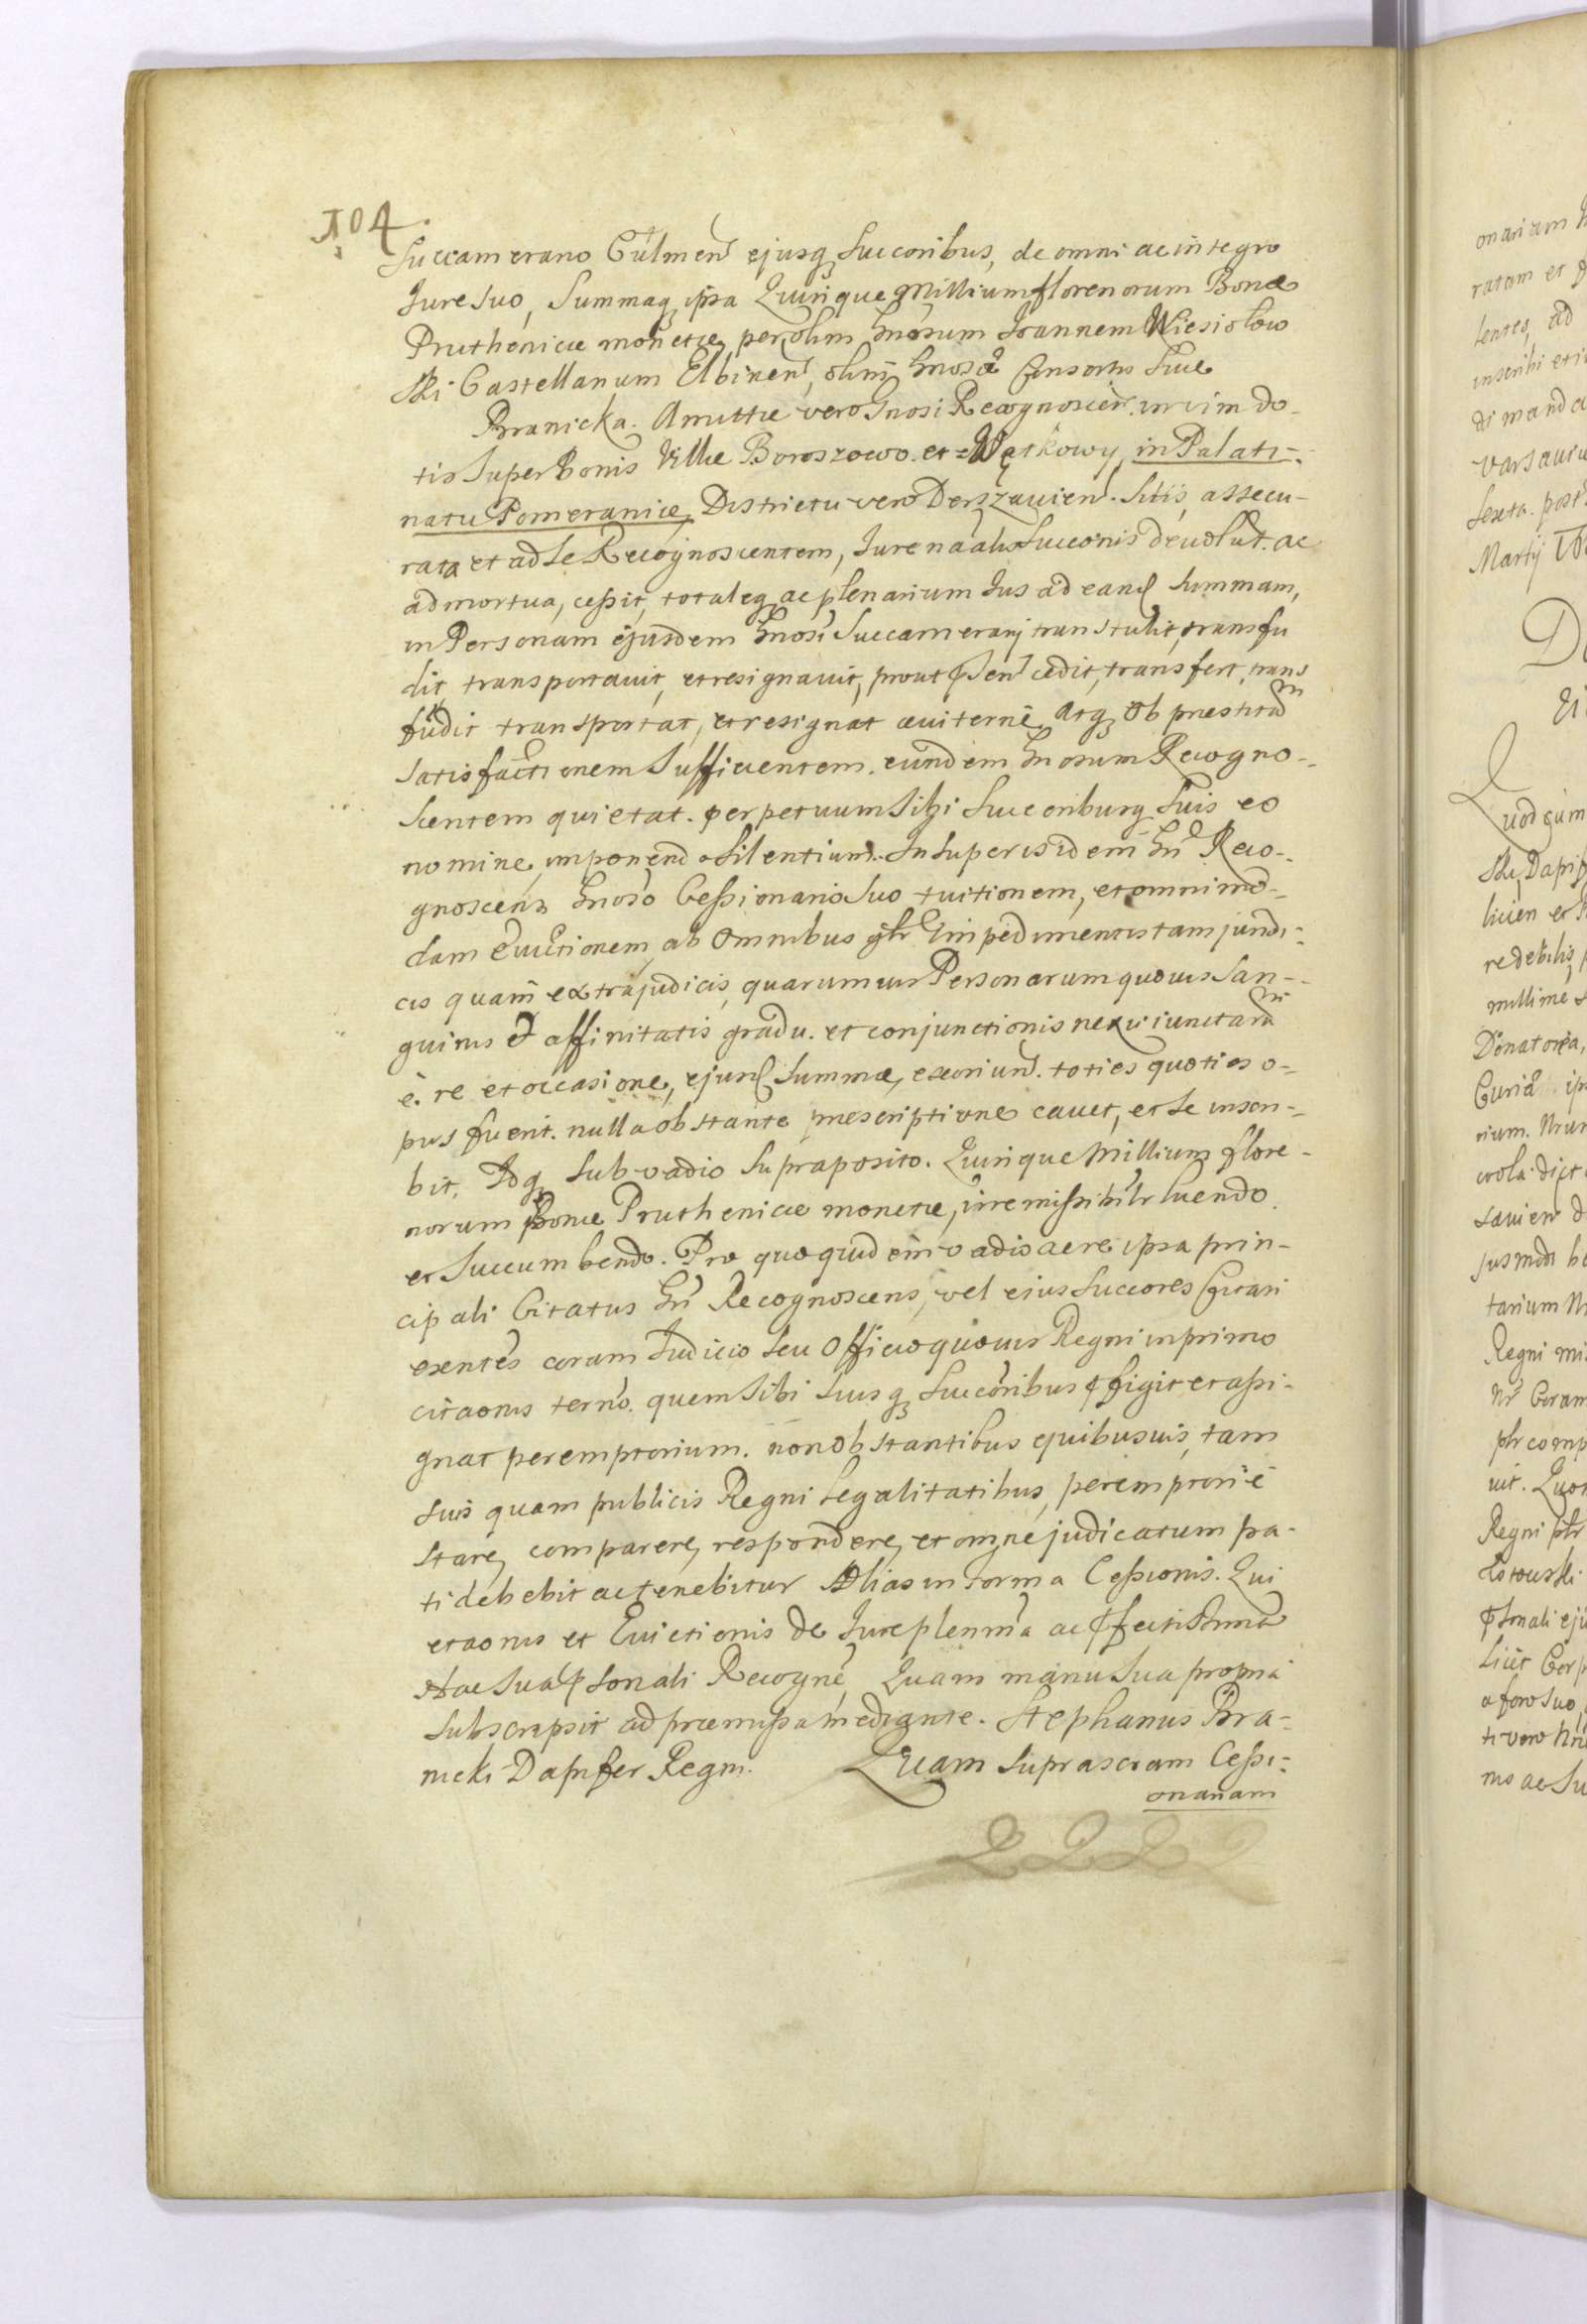 104.
Succamerano Culmen ejusq Succoribus, de omni ac integro
Jure suo, Summaq ipsa Quinque Millium florenorum Bonæ
Pruthenicæ monetæ, per olim Gnosum Joannem Wiesiolow
ski Castellanum Elbinen, olim Gnosæ Consortis Suæ
Branicka. Amittæ vero Gnosi Recognoscen. in vim do-
tis super Bonis Villæ Boroszowo. et Wętkowy in Palati-
natu Pomeraniæ, Districtu vero Derszauien. Sitis, assecu-
rata et ad Se Recognoscentem, Jure naalis Succonis deuolut. ac
admortua, cessit, totaleq ac plenarium Jus ad eand Summam,
in Personam ejusdem Gnosi Succamerarij transtulit, transfu
dit transportauit, et resignauit, prout psen cedit, transfert, trans
fudit transportat, et resignat æuiternè. Atq Ob præstitam
satisfactionem Sufficientem. eundem Gnosum Recogno-
scentem quietat. perpetuum Sibi Succoribusq Suis eo
nomine, imponendo Silentium. Insuper isidem Gn Reco-
gnoscens Gnoso Cessionario Suo tuitionem, et omnimo-
dam Euictionem, ab Omnibus glr Impedimentis tam juridi-
cis quam extrajudicis, quarumuis Personarum quouis San-
guinis & affinitatis gradu. et conjunctionis nexu iunctarum
è. re et occasione, ejusd Summæ, exoriund. toties quoties o-
pus fuerit. nulla obstante præscriptione cauet, et se inscri-
bit. Idq Sub vadio Supraposito. Quinque Millium flore-
norum Bonæ Pruthenicæ monetæ, irremissibilr luendo
et Succumbendo. Pro quo quidem vadio ac re ipsa prin-
cipali Citatus Gn Recognoscens, vel eius Succores Citati
exentes coram Judicio seu Officio quouis Regni in primo
citaonis terno. quem Sibi Suisq Succoribus pfigit et assi-
gnat peremptorium. non Obstantibus quibusuis, tam
suis quam publicis Regni Legalitatibus, peremptoriè
stare, comparere, respondere, et omne judicatum pa-
ti debebit ac tenebitur Alias in forma Cessionis. Qui
etaonis et Euictionis de Jure plenma ac pfectissima
Hac Sua psonali Recogne, Quam manu Sua propria
Subscripsit ad præmissa mediante. Stephanus Bra-
nicki Dapifer Regni. Quam suprascram Cessi-
onariam